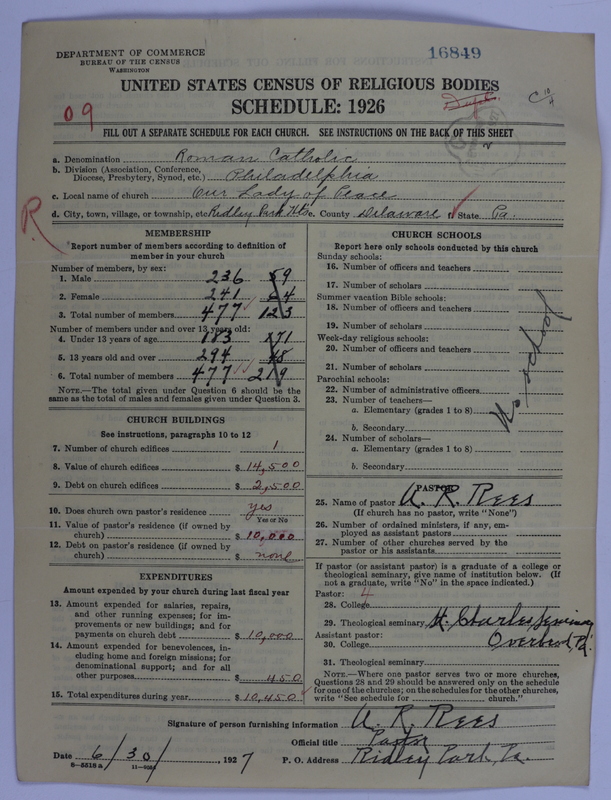 DEPARTMENT OF COMMERCE
BUREAU OF THE CENSUS
WASHINGTON
16849
UNITED STATES CENSUS OF RELIGIOUS BODIES
SCHEDULE: 1926
09
C 10/4
FILL OUT A SEPARATE SCHEDULE FOR EACH CHURCH. SEE INSTRUCTIONS ON THE BACK OF THIS SHEET
a. Denomination Roman Catholic
b. Division (Association, Conference, Diocese, Presbytery, Synod, etc.) Philadelphia
c. Local name of church Our Lady of Peace
d. City, town, village, or township, etc. Ridley Park Hts e. County Delaware f. State Pa.
R
MEMBERSHIP
Report number of members according to definition of
member in your church
Number of members, by sex:
1. Male 236 59
2. Female 241 64
3. Total number of members 477 123
Number of members under and over 13 years old:
4. Under 13 years of age 183 171
5. 13 years old and over 294 48
6. Total number of members 477 219
NOTE.—The total given under Question 6 should be the
same as the total of males and females given under Question 3.
CHURCH BUILDINGS
See instructions, paragraphs 10 to 12
7. Number of church edifices 1
8. Value of church edifices $ 14,500
9. Debt on church edifices $ 2,500
10. Does church own pastor's residence yes
Yes or No
11. Value of pastor's residence (if owned by
church) $ 10,000
12. Debt on pastor's residence (if owned by
church) $ none
EXPENDITURES
Amount expended by your church during last fiscal year
13. Amount expended for salaries, repairs,
and other running expenses; for im-
provements or new buildings; and for
payments on church debt $ 10,000
14. Amount expended for benevolences, in-
cluding home and foreign missions; for
denominational support; and for all
other purposes $ 450
15. Total expenditures during year $ 10,450
CHURCH SCHOOLS
Report here only schools conducted by this church
Sunday schools:
16. Number of officers and teachers
17. Number of scholars
Summer vacation Bible schools:
18. Number of officers and teachers
19. Number of scholars
Week-day religious schools:
20. Number of officers and teachers
21. Number of scholars
Parochial schools:
22. Number of administrative officers
23. Number of teachers—
a. Elementary (grades 1 to 8)
b. Secondary
24. Number of scholars—
a. Elementary (grades 1 to 8)
b. Secondary
No school
PASTOR
25. Name of pastor A. R. Rees
(If church has no pastor, write "None")
26. Number of ordained ministers, if any, em-
ployed as assistant pastors
27. Number of other churches served by the
pastor or his assistants
If pastor (or assistant pastor) is a graduate of a college or
theological seminary, give name of institution below. (If
not a graduate, write "No" in the space indicated.)
Pastor: 4
28. College
29. Theological seminary St. Charles Seminary
Assistant pastor: Overbrook, Pa.
30. College
31. Theological seminary
NOTE.—Where one pastor serves two or more churches,
Questions 28 and 29 should be answered only on the schedule
for one of the churches; on the schedules for the other churches,
write "See schedule for church."
Signature of person furnishing information A. R. Rees
Official title Pastor
Date 6/30/ 1927 P. O. Address Ridley Park, Pa.
8-5518a